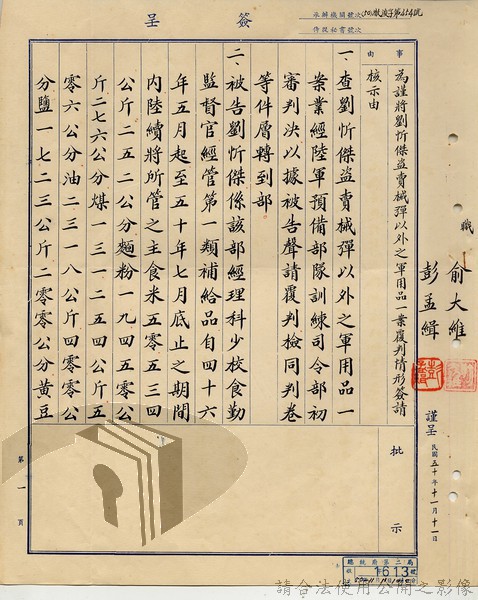 簽呈
承辦機關號次
件收祕書號次
事由
為謹將劉忻傑盜賣械彈以外之軍用品一案覆判情形簽請
核示由
一、查劉忻傑盜賣械彈以外之軍用品一
案業經陸軍預備部隊訓練司令部初
審判決以據被告聲請覆判檢同判卷
等件層轉到部
二、被告劉忻傑係該部經理科少校食勤
監督官經管第一類補給品自四十六
年五月起至五十年七月底止之期間
內陸續將所管之主食米五零五三四
公斤二五二公分麵粉一九四五零公
斤二七六公分煤一三一二五四公斤五
零六公分油二三一八公斤四零零公
分鹽一七二三公斤二零零公分黃豆
職
俞大維
彭孟緝
謹呈
民國五十年十一月十一日
批示
第一頁
總統府第二局
1613
請合法使用公開之影像